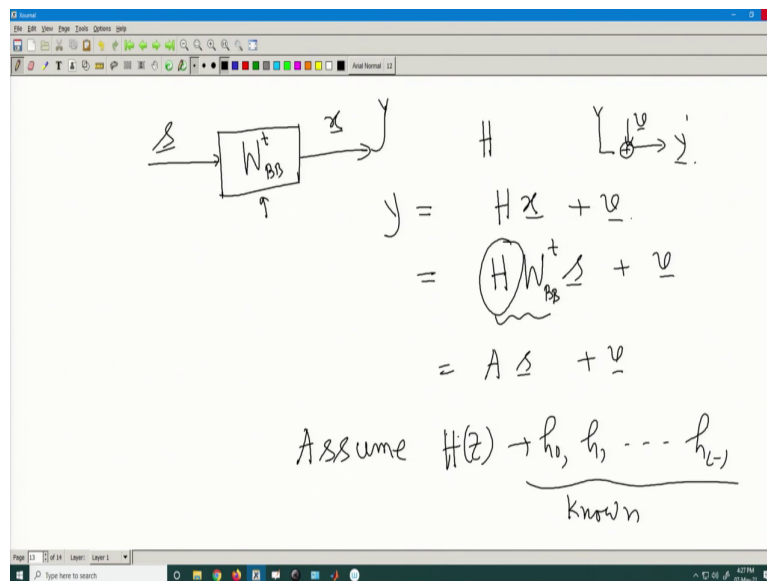 Xournal
File Edit View Page Tools Options Help
Arial Normal 12
s W^t_BB x H v y
y = H x + v
= H W^t_BB s + v
= A s + v
Assume H(z) → h_0, h_1 --- h_{L-1}
Known
Page 13 of 14 Layer: Layer 1
Type here to search
4:27 PM